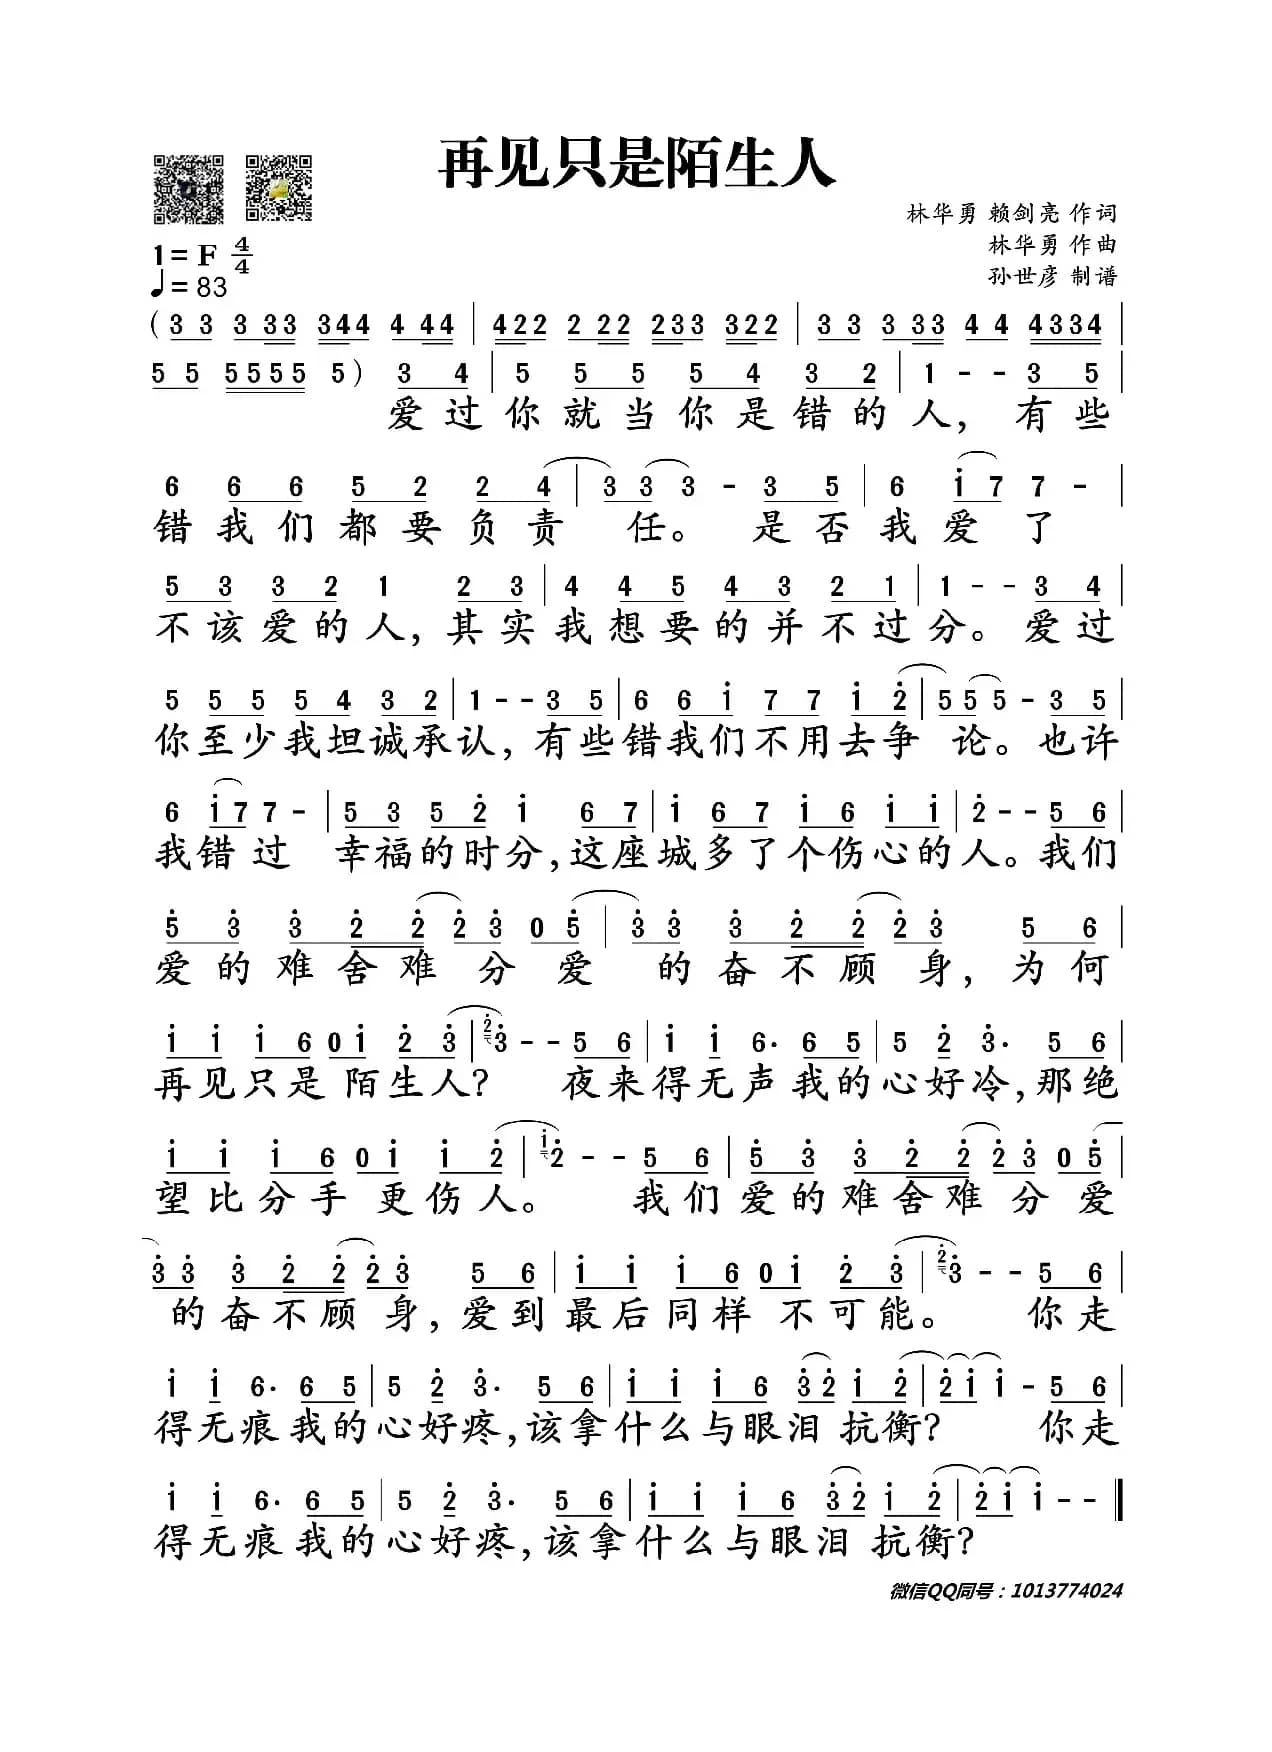 再见只是陌生人
林华勇 赖剑亮 作词
1= F 4/4
林华勇 作曲
♩= 83
孙世彦 制谱
( 3 3 3 3 3 3 4 4 4 4 4 | 4 2 2 2 2 2 2 3 3 3 2 2 | 3 3 3 3 3 4 4 4 3 3 4 |
5 5 5 5 5 5 5 ) 3 4 | 5 5 5 5 4 3 2 | 1 - - 3 5 |
爱过你就当你是错的人，有些
6 6 6 5 2 2 4 | 3 3 3 - 3 5 | 6 i 7 7 - |
错我们都要负责任。是否我爱了
5 3 3 2 1 2 3 | 4 4 5 4 3 2 1 | 1 - - 3 4 |
不该爱的人，其实我想要的并不过分。爱过
5 5 5 5 4 3 2 | 1 - - 3 5 | 6 6 i 7 7 i 2̇ | 5 5 5 - 3 5 |
你至少我坦诚承认，有些错我们不用去争论。也许
6 i 7 7 - | 5 3 5 2̇ i 6 7 | i 6 7 i 6 i i | 2̇ - - 5 6 |
我错过 幸福的时分，这座城多了个伤心的人。我们
5̇ 3̇ 3̇ 2̇ 2̇ 2̇ 3̇ 0 5̇ | 3̇ 3̇ 3̇ 2̇ 2̇ 2̇ 3̇ 5 6 |
爱的难舍难分爱的奋不顾身，为何
i i i 6 0 i 2̇ 3̇ | 2̇ 3̇ - - 5 6 | i i 6· 6 5 | 5 2̇ 3̇· 5 6 |
再见只是陌生人？夜来得无声我的心好冷，那绝
i i i 6 0 i i 2̇ | i 2̇ - - 5 6 | 5̇ 3̇ 3̇ 2̇ 2̇ 2̇ 3̇ 0 5̇ |
望比分手更伤人。我们爱的难舍难分爱
3̇ 3̇ 3̇ 2̇ 2̇ 2̇ 3̇ 5 6 | i i i 6 0 i 2̇ 3̇ | 2̇ 3̇ - - 5 6 |
的奋不顾身，爱到最后同样不可能。你走
i i 6· 6 5 | 5 2̇ 3̇· 5 6 | i i i 6 3̇ 2̇ i 2̇ | 2̇ i i - 5 6 |
得无痕我的心好疼，该拿什么与眼泪抗衡？你走
i i 6· 6 5 | 5 2̇ 3̇· 5 6 | i i i 6 3̇ 2̇ i 2̇ | 2̇ i i - - ‖
得无痕我的心好疼，该拿什么与眼泪抗衡？
微信QQ同号：1013774024